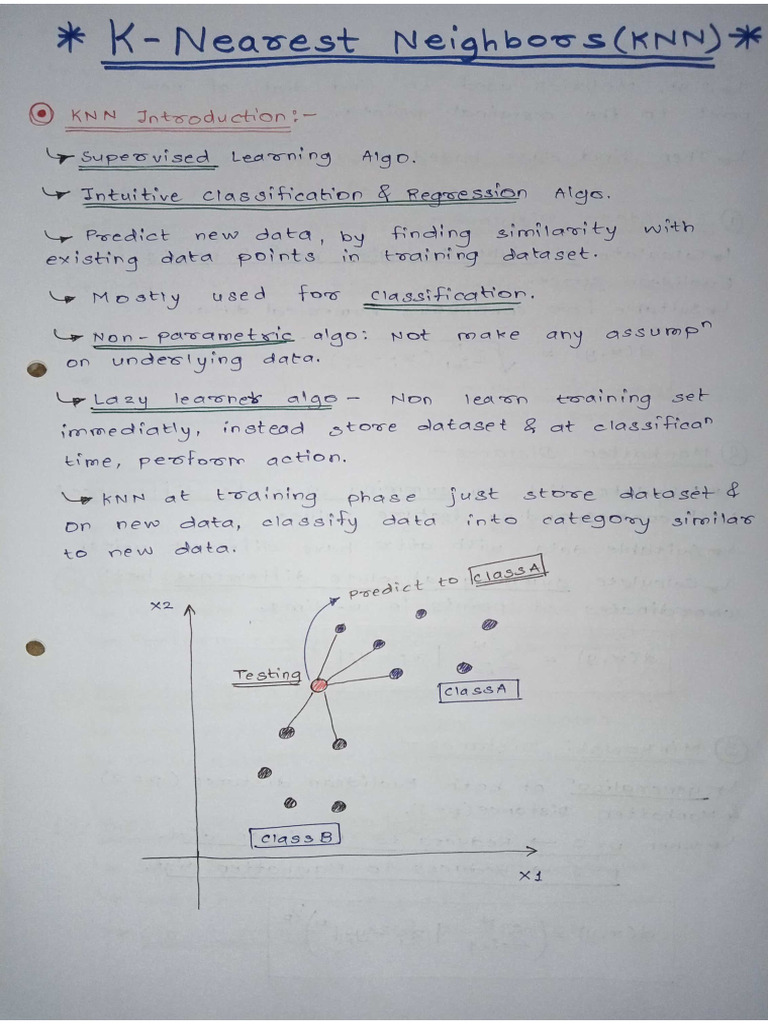 * K-Nearest Neighbors(KNN) *
KNN Introduction:-
Supervised Learning Algo.
Intuitive classification & Regression Algo.
Predict new data, by finding similarity with
existing data points in training dataset.
Mostly used for classification.
Non-parametric algo: Not make any assumpⁿ
on underlying data.
Lazy learner algo - Non learn training set
immediatly, instead store dataset & at classificaⁿ
time, perform action.
KNN at training phase just store dataset &
on new data, classify data into category similar
to new data.
Predict to Class A
X2
Testing
Class A
Class B
X1